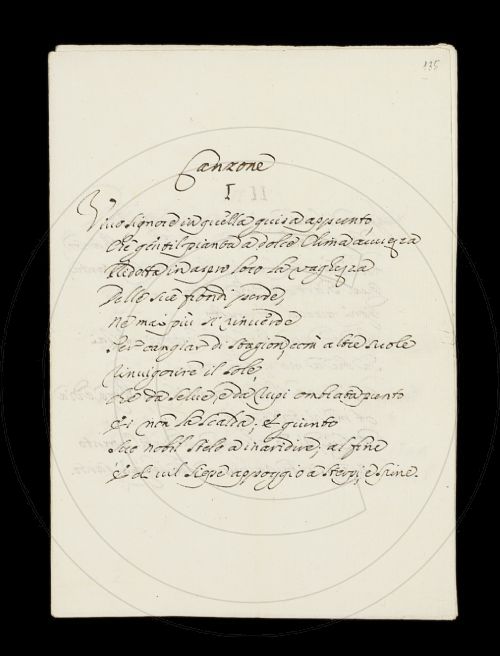 135
Canzone
I
Vivo Signore in quella guisa appunto,
Che gentil pianta a dolce Clima avvezza
Ridotta in aspro loco la vaghezza
Delle sue frondi perde,
Ne mai più si rinverde
Per cangiar di Stagion, con altre suole
Rinvigorire il Sole,
Che da selve, e da rupi ombrata punto
Ei non la scalda; et giunto
Suo nobil stelo a inaridire; al fine
È di vil siepe appoggio a sterpi, e spine.